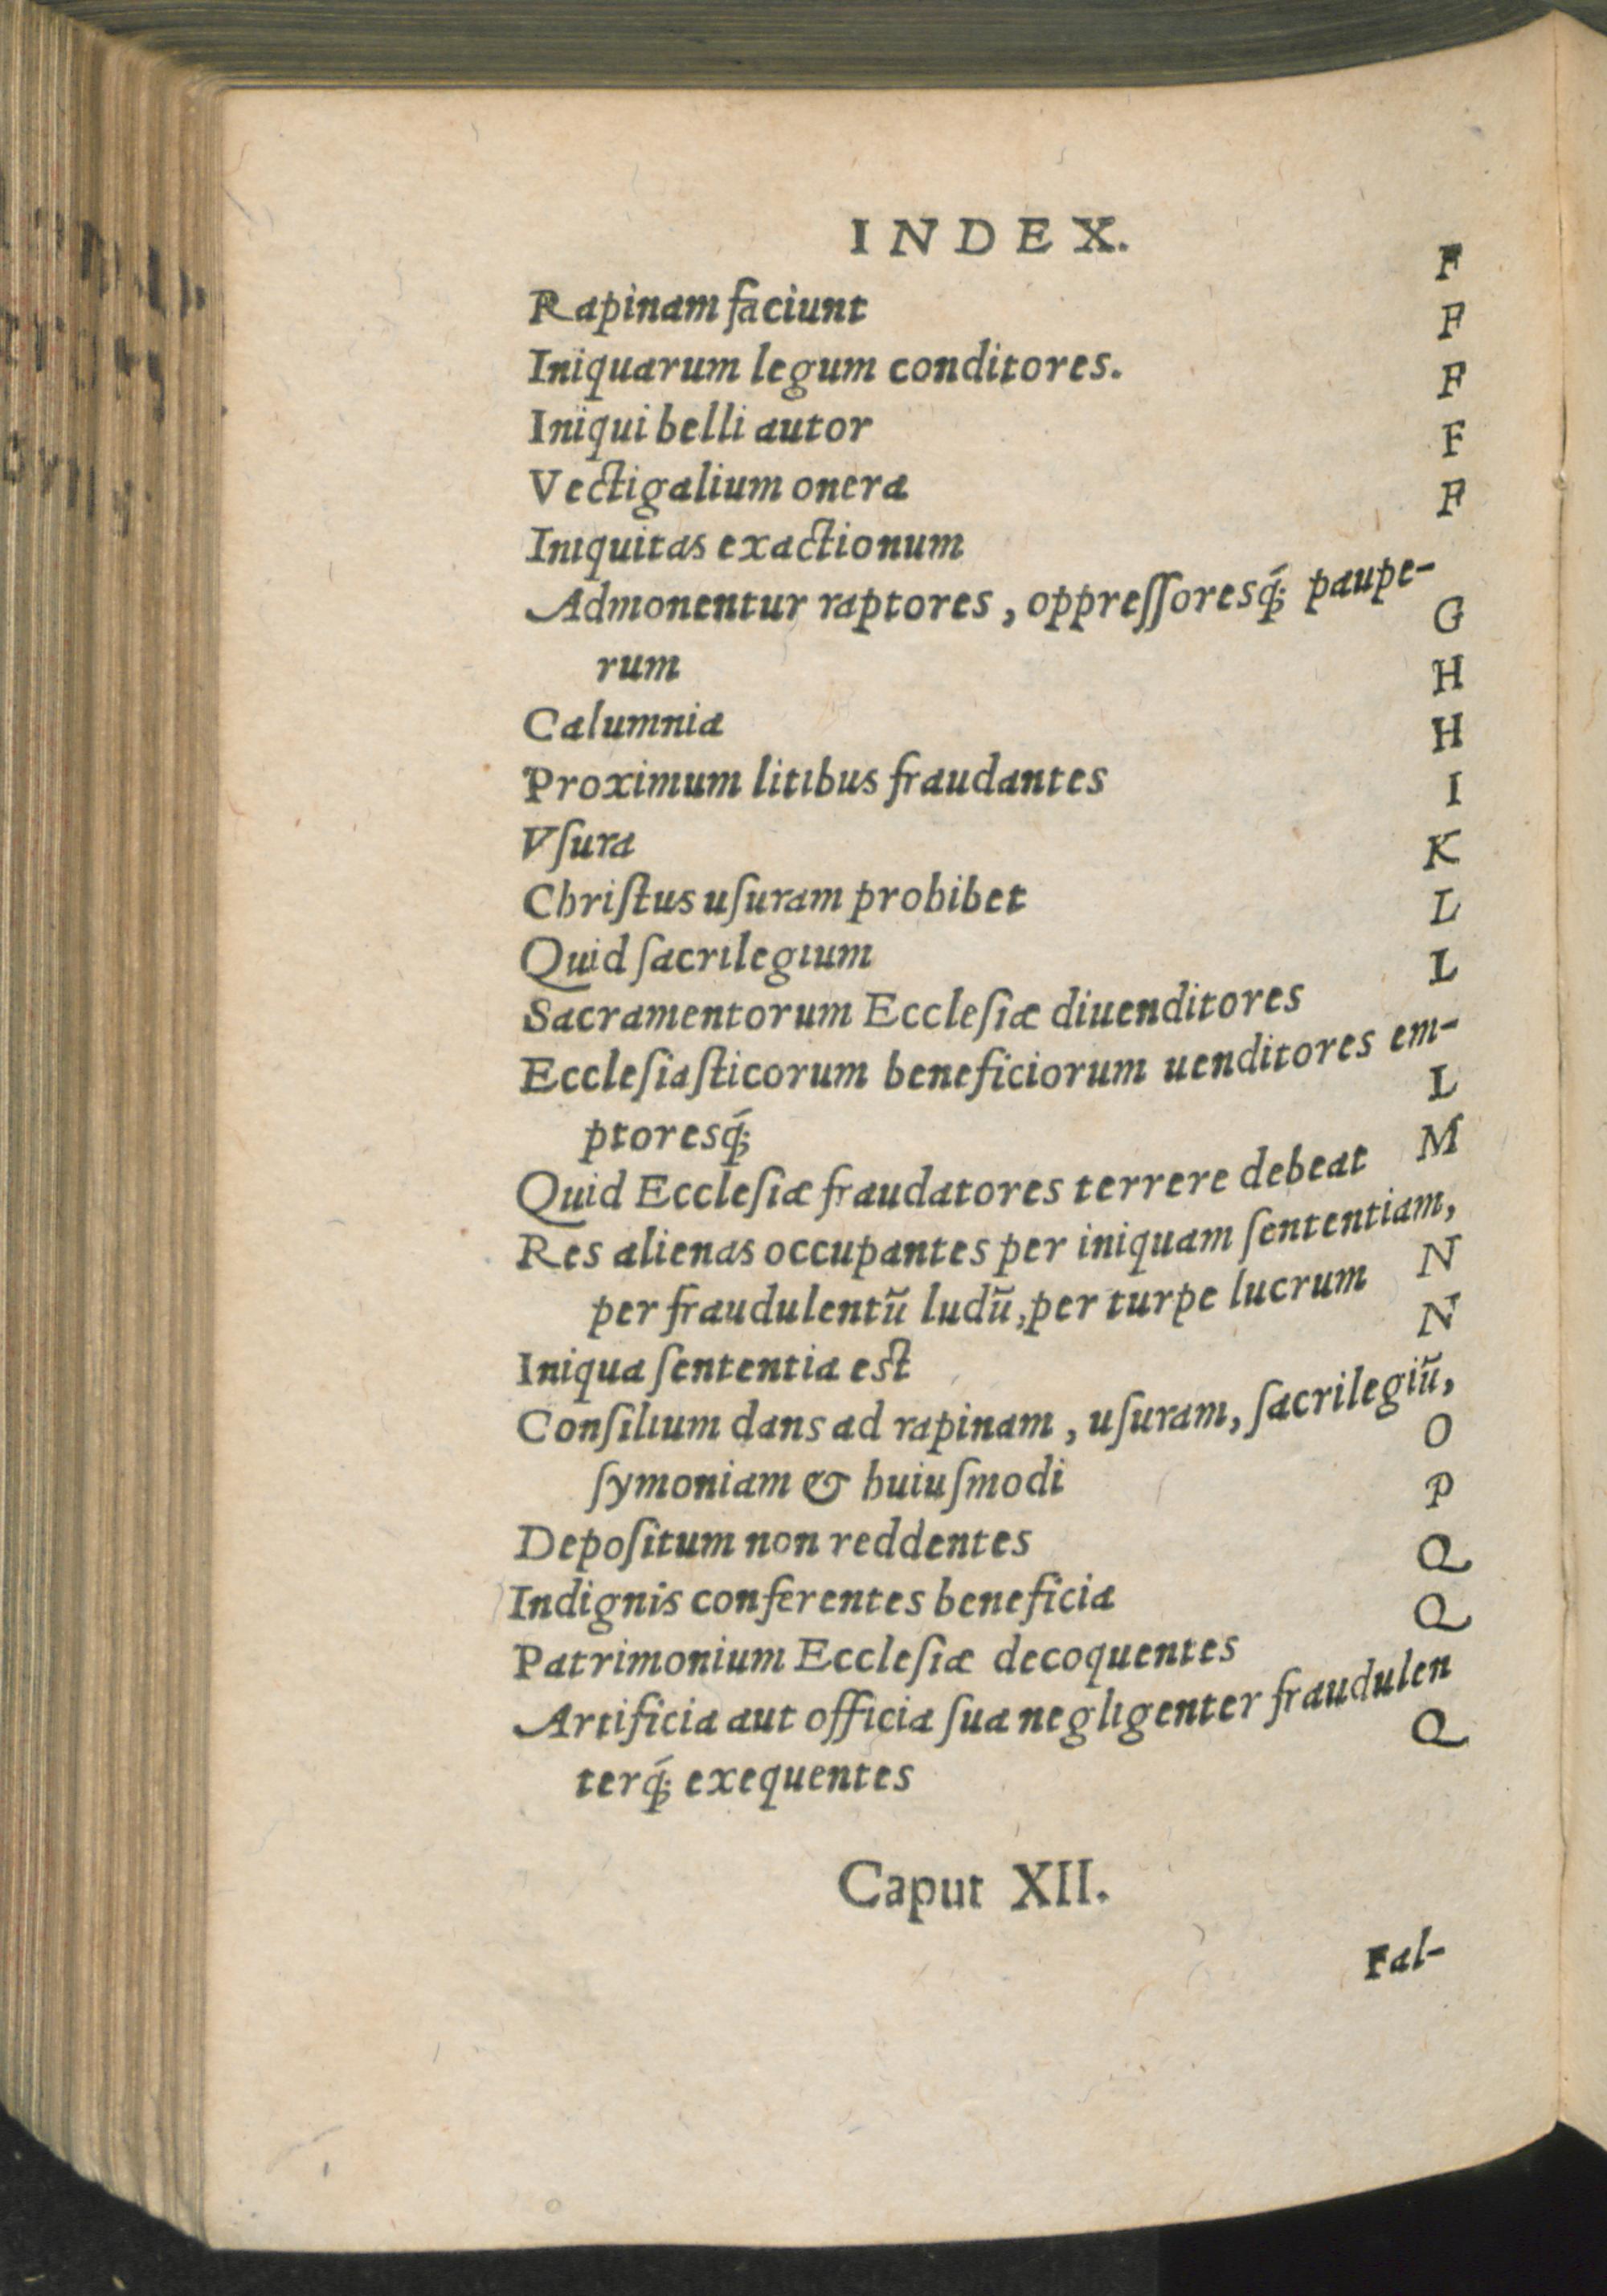 INDEX.
Rapinam faciunt F
Iniquarum legum conditores. F
Iniqui belli autor F
Vectigalium onera F
Iniquitas exactionum F
Admonentur raptores, oppreſſoresq́; paupe-
rum G
Calumnia H
Proximum litibus fraudantes H
Vſura I
Chriſtus uſuram prohibet K
Quid ſacrilegium L
Sacramentorum Eccleſiæ diuenditores L
Eccleſiaſticorum beneficiorum uenditores em-
ptoresq́; L
Quid Eccleſiæ fraudatores terrere debeat M
Res alienas occupantes per iniquam ſententiam,
per fraudulentū ludū, per turpe lucrum N
Iniqua ſententia est N
Conſilium dans ad rapinam, uſuram, ſacrilegiū,
ſymoniam & huiuſmodi O
Depoſitum non reddentes P
Indignis conferentes beneficia Q
Patrimonium Eccleſiæ decoquentes Q
Artificia aut officia ſua negligenter fraudulen
terq́; exequentes Q
Caput XII.
Fal-